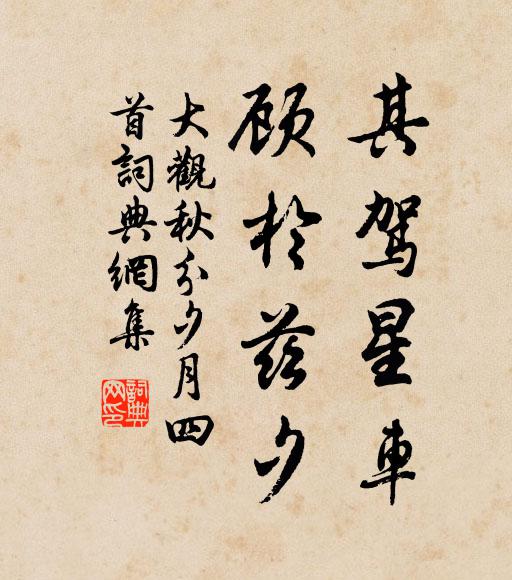 其驾星車
顾於兹夕
大觀秋分夕月四
首詞典網集
詞典
网印